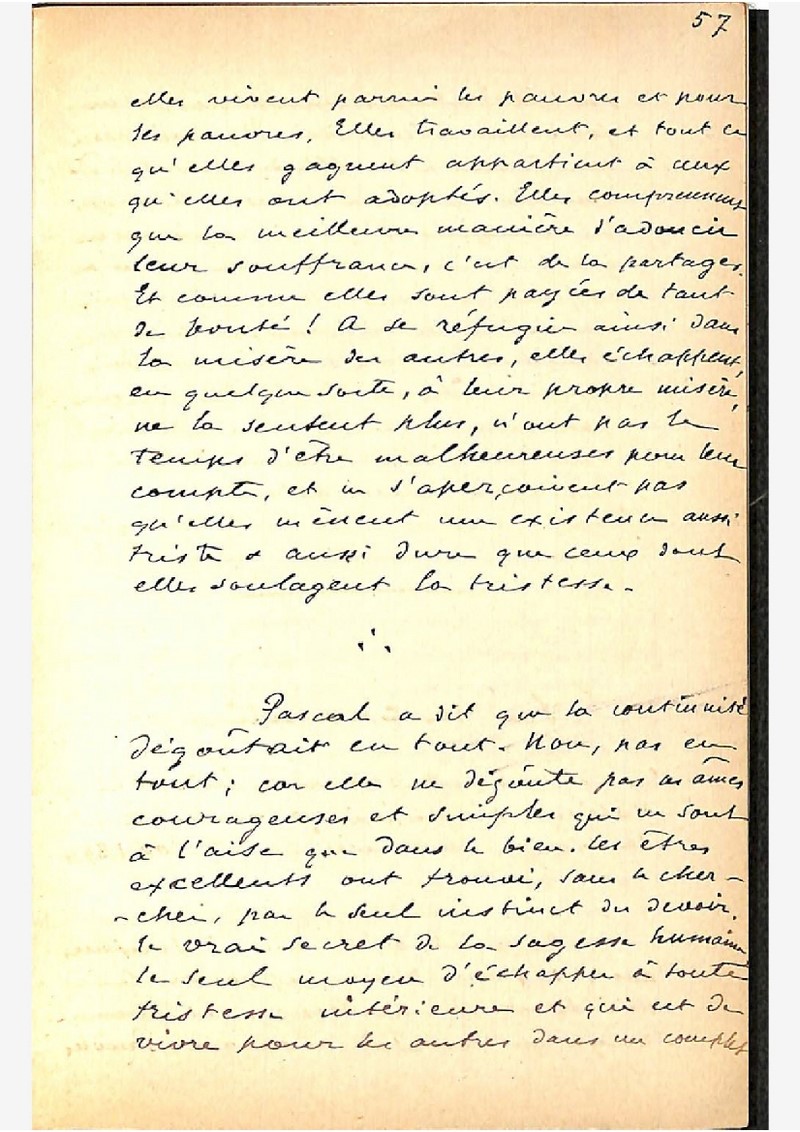 57
elles vivent parmi les pauvres et pour
les pauvres. Elles travaillent, et tout ce
qu'elles gagnent appartient à ceux
qu'elles ont adoptés. Elles comprennent
que la meilleure manière d'adoucir
leur souffrance, c'est de la partager.
Et comme elles sont payées de tant
de bonté ! A se réfugier ainsi dans
la misère des autres, elles échappent,
en quelque sorte, à leur propre misère,
ne la sentent plus, n'ont pas le
temps d'être malheureuses pour leur
compte, et ne s'aperçoivent pas
qu'elles mènent une existence aussi
triste & aussi dure que ceux dont
elles soulagent la tristesse.
∴
Pascal a dit que la continuité
dégoûtait en tout. Non, pas en
tout ; car elle ne dégoûte pas les âmes
courageuses et simples qui ne sont
à l'aise que dans le bien. Ces êtres
excellents ont trouvé, sans le cher-
-cher, par le seul instinct du devoir,
le vrai secret de la sagesse humaine
le seul moyen d'échapper à toute
tristesse intérieure et qui est de
vivre pour les autres dans un complet